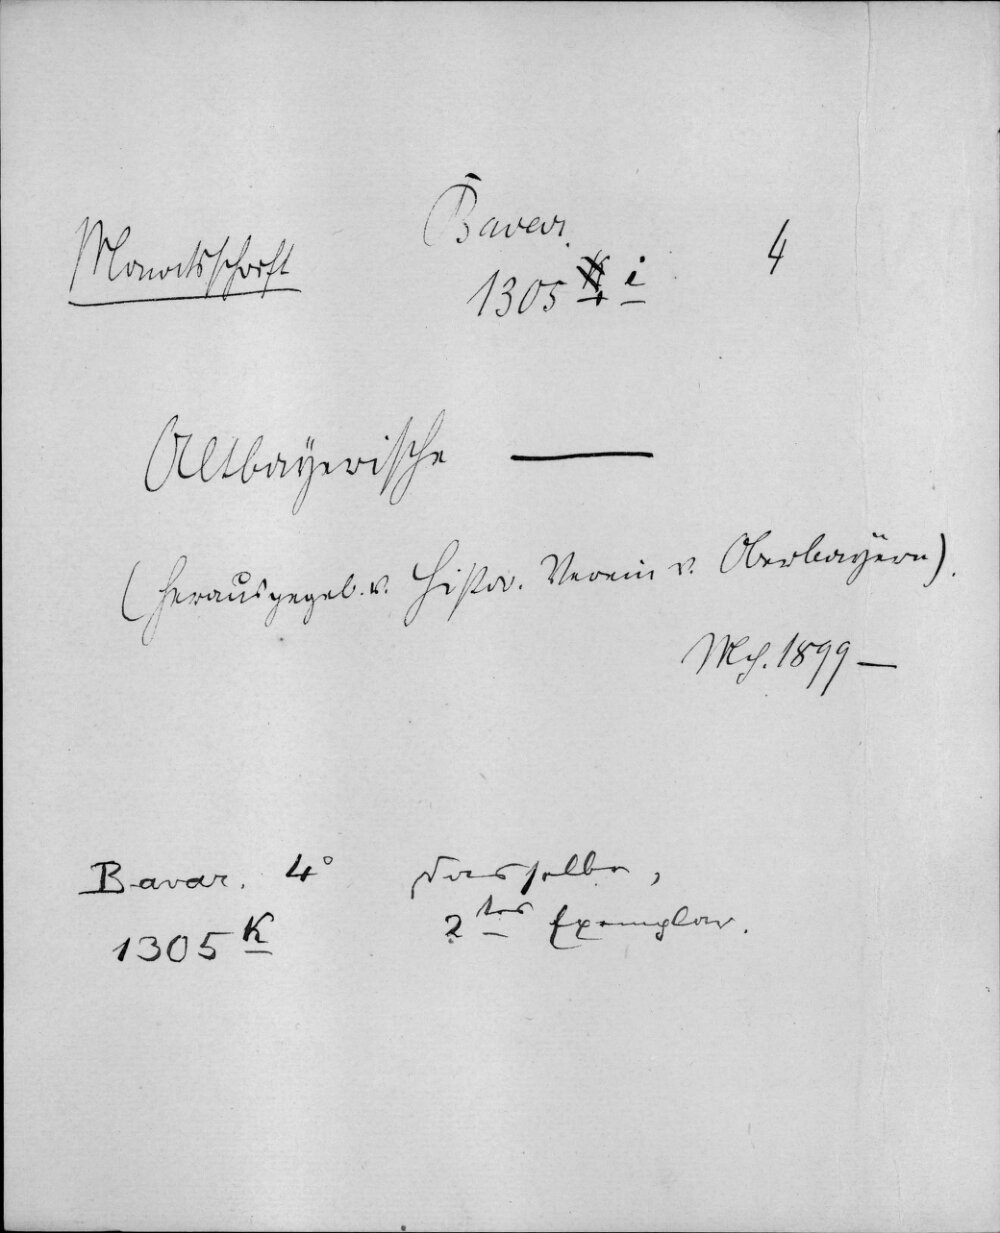 Monatsschrift Bavar. 4
1305 i
Altbayerische —
(herausgegeb. v. histor. Verein v. Oberbayern).
Mch. 1899 —
Bavar. 4° dasselbe,
1305 K 2tes Exemplar.